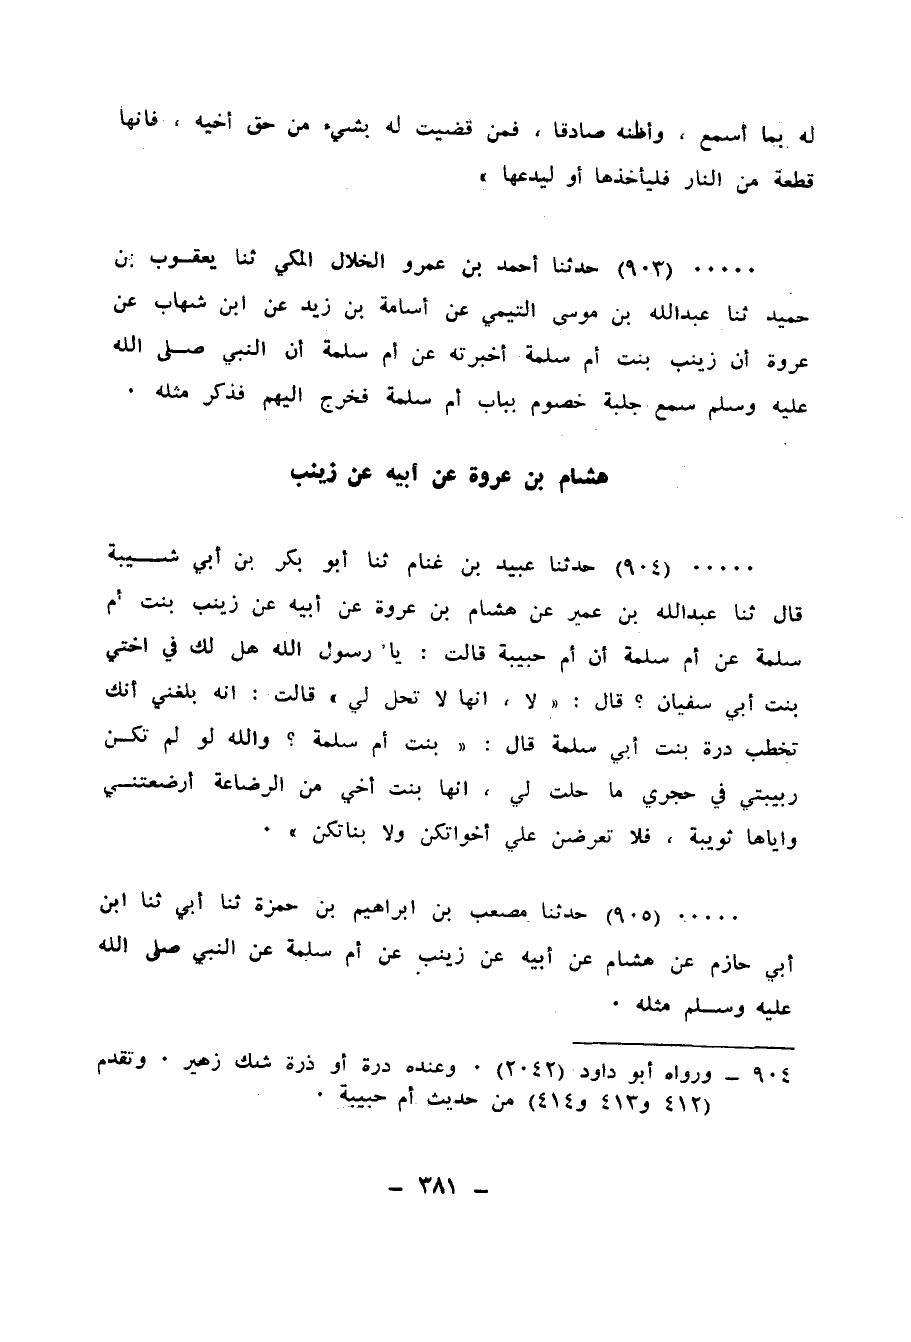 له بما أسمع ، وأظنه صادقا ، فمن قضيت له بشيء من حق أخيه ، فانها
قطعة من النار فليأخذها أو ليدعها »
..... (٩٠٣) حدثنا أحمد بن عمرو الخلال المكي ثنا يعقـوب بن
حميد ثنا عبدالله بن موسى التيمي عن أسامة بن زيد عن ابن شهاب عن
عروة أن زينب بنت أم سلمة أخبرته عن أم سلمة أن النبي صـلى الله
عليه وسلم سمع جلبة خصوم بباب أم سلمة فخرج اليهم فذكر مثله ٠
هشام بن عروة عن أبيه عن زينب
..... (٩٠٤) حدثنا عبيد بن غنام ثنا أبو بكر بن أبي شـــيبة
قال ثنا عبدالله بن عمير عن هشام بن عروة عن أبيه عن زينب بنت أم
سلمة عن أم سلمة أن أم حبيبة قالت : يا رسول الله هل لك في اختي
بنت أبي سفيان ؟ قال : « لا ، انها لا تحل لي » قالت : انه بلغني أنك
تخطب درة بنت أبي سلمة قال : « بنت أم سلمة ؟ والله لو لم تكـن
ربيبتي في حجري ما حلت لي ، انها بنت أخي من الرضاعة أرضعتنـي
واياها ثويبة ، فلا تعرضن علي أخواتكن ولا بناتكن » ٠
..... (٩٠٥) حدثنا مصعب بن ابراهيم بن حمزة ثنا أبي ثنا ابن
أبي حازم عن هشام عن أبيه عن زينب عن أم سلمة عن النبي صلى الله
عليه وسـلم مثله ٠
٩٠٤ ـ ورواه أبو داود (٢٠٤٢) ٠ وعنده درة أو ذرة شك زهير ٠ وتقدم
(٤١٢ و٤١٣ و٤١٤) من حديث أم حبيبة ٠
ـ ٣٨١ ـ